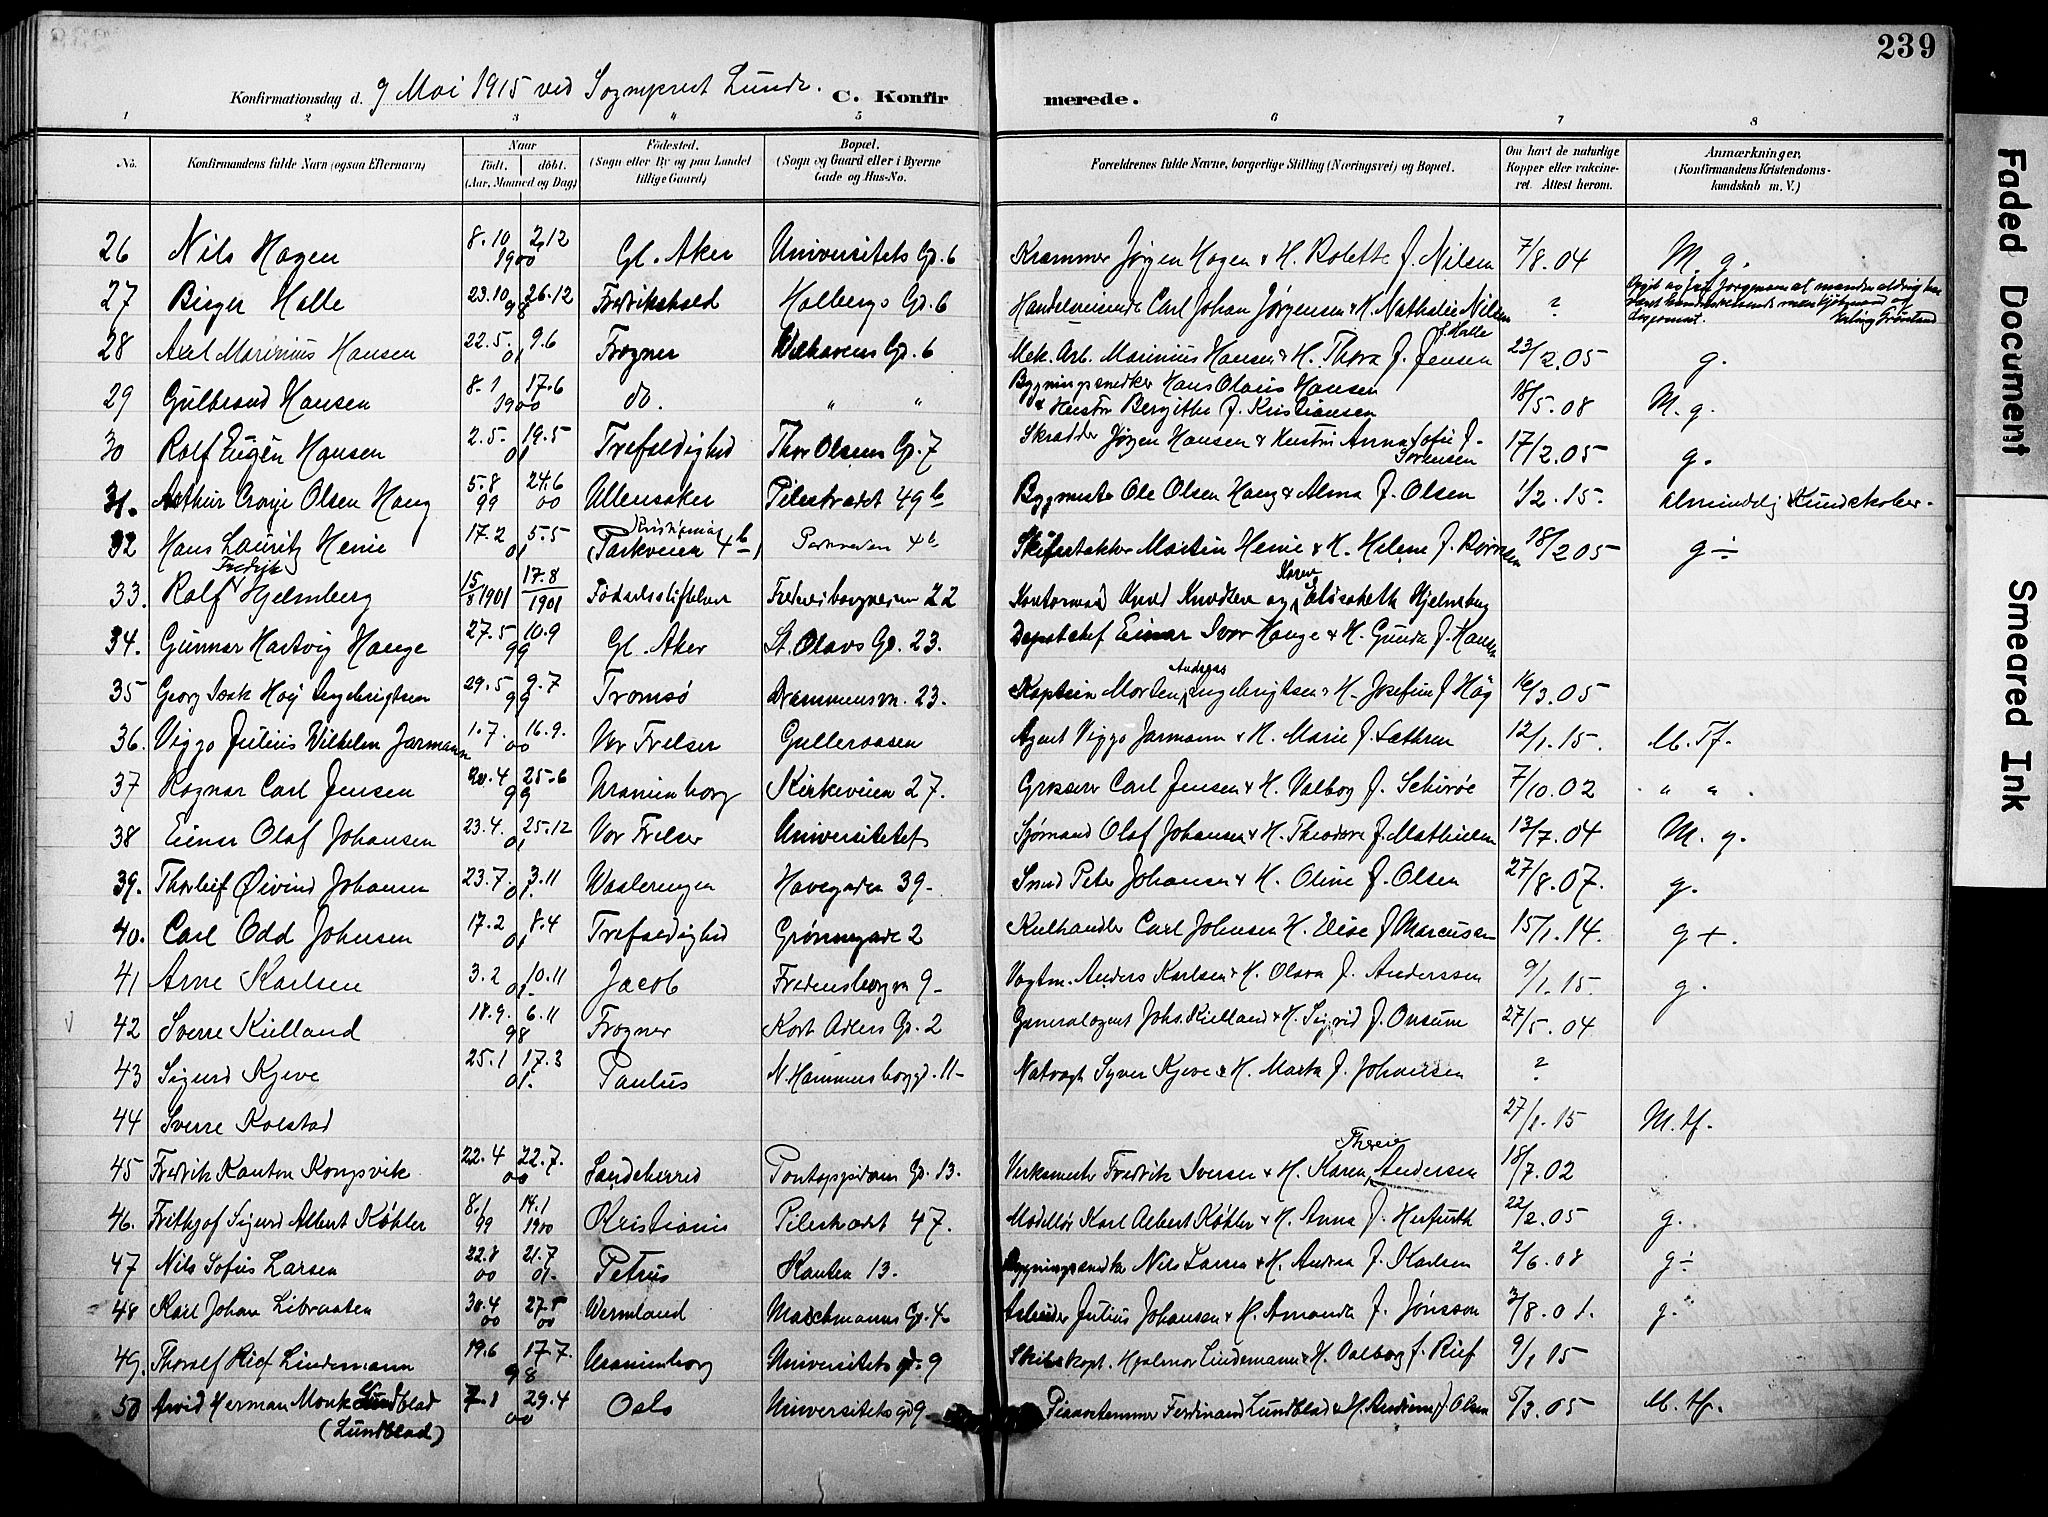 239
Konfirmationsdag d. 9 Mai 1915 ved Sogneprest Lunde. C. Konfirmerede.
1 2 3 " 5 6 7 8
No. Konfirmandens fulde Navn (ogsaa Efternavn) Naar født. døbt. (Aar, Maaned og Dag) Fødested. (Sogn eller By og paa Landet tillige Gaard) Bopæl. (Sogn og Gaard eller i Byerne Gade og Hus-No. Forældrenes fulde Navne, borgerlige Stilling (Næringsvei) og Bopæl. Om havt de naturlige Kopper eller vaccineret. Attest herom. Anmærkninger. (Konfirmandens Kristendomskundskab m. V.)
26 Nils Hagen 8.10 2.12 1900 Gl. Aker Universitets Gd. 6 Kræmmer Jørgen Hagen & H. Bolette f. Nilsen 7/8.04 M. g.
27 Birger Halle 23.10 26.12 98 Fredrikshald Holbergs Gd. 6 Handelsreisende Carl Johan Jørgensen & H. Nathalie Nilsen f. Halle ?
28 Axel Marinius Hansen 22.5. 9.6 01 Frogner Welhavens Gd. 6 Mek. Arb. Marinius Hansen & H. Thora f. Jensen 23/2.05 g.
29 Gulbrand Hansen 8.1 17.6 1900 do. " " Bygningssnedker Hans Olaus Hansen & Hustru Bergithe f. Kristiansen 18/5.08 M. g.
30 Rolf Eugén Hansen 2.5. 19.5 01 Trefoldighed Thor Olsens Gd. 7 Skrædder Jørgen Hansen & Hustru Anna Sofie f. Sørensen 17/2.05 g.
31. Arthur Cronje Olsen Haug 5.8 99 24.6 00 Ullensaker Pilestrædet 49 b Bygmester Ole Olsen Haug & Alma f. Olsen 1/2.15. Almindelig Kundskaber.
32 Hans Lauritz Henie 17.2 5.5 01 Kristiania (Parkveien 4 b) Parkveien 4 b Martin Henie & H. Helene f. 18/2 05 g ÷
33. Rolf Fredrik Hjelmberg 15/8 1901 17.8 1901 Fødselsstiftelsen Fredensborgveien 22 Kontormand Knud Knudsen og Karen Elisabeth Hjelmberg
34. Gunnar Hartvig Hauge 27.5 10.9 99 Gl. Aker St. Olavs Gd. 23. Depotchef Einar Ivar Hauge & H. Gunda f. Hansen
35 Georg Isak Høij Ingebrigtsen 29.5 9.7 99 Tromsø Drammensvn. 23. Kaptein Morten Andreas Ingebrigtsen & H. Josefine f. Høij 16/3.05
36. Viggo Julius Wilhelm Jarmann 1.7. 16.9. 00 Vor Frelser Gulleraasen Agent Viggo Jarmann & H. Marie f. Sæthren 12/1.15. M. Tf.
37 Ragnar Carl Jensen 20.4 25.6 99 Uranienborg Kirkeveien 27. Grosserer Carl Jensen & H. Valborg f. Schirøe 7/10.02 " " .
38 Einar Olaf Johansen 23.4. 25.12 01 Vor Frelser Universitetet Sjømand Olaf Johansen & H. Theodora f. Mathisen 13/7.04 M. g.
39. Thorleif Øivind Johansen 23.7. 3.11 01. Vaalerengen Havegaden 39. Smed Peter Johansen & H. Oline f. Olsen 27/8.07. g.
40. Carl Odd Johnsen 17.2 8.4 01 Trefoldighed Grønnegade 2 Kulhandler Carl Johnsen H. Elise f. Marcussen 15/1.14. g +.
41 Arne Karlsen 3.2 10.11 01. Jacob Fredensborgvn 9 Vagtm. Anders Karlsen & H. Olava f. Anderssen 9/1.15. g.
42 Sverre Kielland 18.9. 6.11 98 Frogner Kort Adlers Gd. 2 Generalagent Johs. Kielland & H. Sigrid f. Onsum 27/5.04
43 Sigurd Kjeve 25.1 17.3 01. Paulus N. Hammersborggd. 11 Natvagt Syver Kjeve & H. Marta f. Johnsen ?
44 Sverre Kolstad 27/1.15 M. tf.
45 Fredrik Kanton Kongsvik 22.4 22.7. 00 Sandeherred Pontoppidans Gd. 13. Verksmester Fredrik Iversen & H. Karen Therese Andersen 18/7.02
46. Frithjof Sigurd Albert Køhler 8.1 99 14.1 1900 Kristiania Pilestrædet 47. Modellør Karl Albert Køhler & H. Anna f. Herfurth 22/2.05 g.
47 Nils Sofus Larsen 22.8 00 21.7 01. Petrus Ranten 13. Bygningssnedker Nils Larsen & H. Andrea f. Karlsen 2/6.08 g ÷
48 Karl Johan Libraaten 30.4 00 27.8 00 Wermland Maschmanns Gd. 4 Arbeider Julius Johansen & H. Amanda f. Jónsson 3/8.01. g.
49. Thoralf Rief Lindemann 19.6 17.7. 98 Uranienborg Universitets gd. 9 Skibskapt. Hjalmar Lindemann & H. Valborg f. Rief 9/1 15
50 Arvid Herman Monk Lundblad (Lundblad) 7.1 29.4 00 Oslo Universitetsgd 9 Pianostemmer Ferdinand Lundblad & H. f. Olsen 5/3.05 M. tf.
Faded Document
Smeared Ink